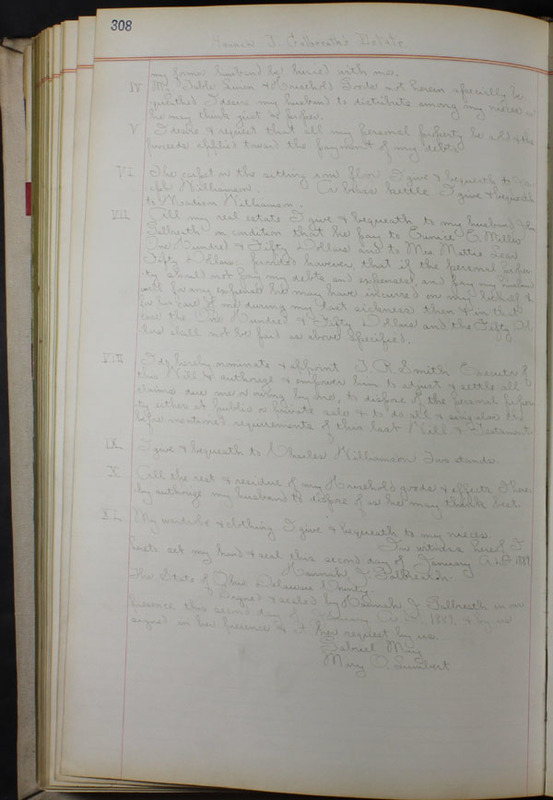 308
Hannah J. Galbreath's Estate.
my former husband be buried with me.
IV My Table Linen & Household Goods not herein specially be-
queathed I desire my husband to distribute among my nieces as
he may think just & proper.
V I desire & request that all my personal property be sold & the
proceeds applied toward the payment of my debts
VI The carpet on the sitting room floor I give & bequeath to
Williamson. A brass kettle I give & bequeath
to Madison Williamson.
VII All my real estate I give & bequeath to my husband
Galbreath on condition that he pay to Eunice E. Miller
One Hundred & Fifty Dollars and to Mrs Mattie
Fifty Dollars: provided however, that if the personal proper-
ty shall not pay my debts and expenses and pay my husband
all for any expense he may have incurred on my behalf &
for his care of me during my last sickness then & in that
case the One Hundred & Fifty Dollars and the Fifty Dol-
lars shall not be paid as above specified.
VIII I do hereby nominate & appoint J. R. Smith Executor of
this Will & authorize & empower him to adjust & settle all
claims due me or owing by me, to dispose of the personal proper-
ty either at public or private sale & to do all & sing
before mentioned requirements of this last Will & Testament.
IX I give & bequeath to Charles Williamson Two stands.
X All the rest & residue of my Household goods & effects I here-
by authorize my husband to dispose of as he may think best.
XI My wardrobe & clothing I give & bequeath to my nieces.
In witness hereof I
have set my hand & seal this second day of January A.D. 1889.
Hannah J. Galbreath.
The State of Ohio Delaware County
Signed & sealed by Hannah J Galbreath in our
presence this second day of A.D. 1889, & by us
signed in her presence & at her request by us.
Gabriel
Mary O.